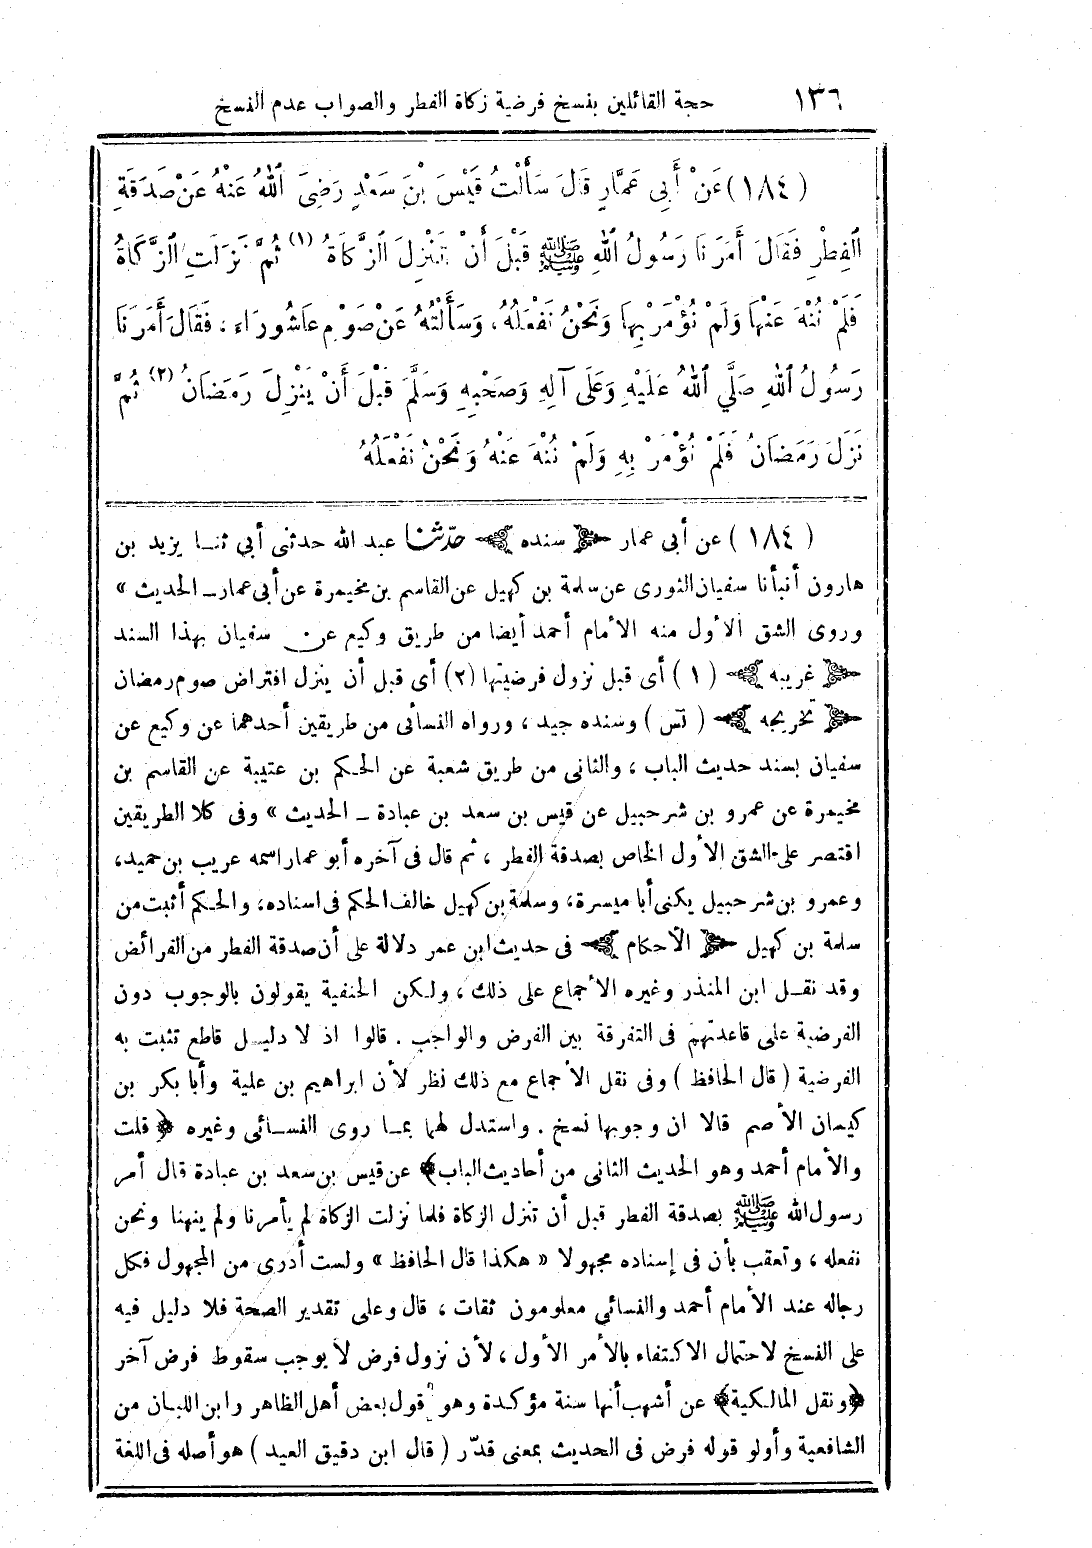 ١٣٦ حجة القائلين بنسخ فرضية زكاة الفطر والصواب عدم النسخ
(١٨٤) عَنْ أَبِي عَمَّارٍ قَالَ سَأَلْتُ قَيْسَ بْنَ سَعْدٍ رَضِيَ اللهُ عَنْهُ عَنْ صَدَقَةِ
الْفِطْرِ فَقَالَ أَمَرَنَا رَسُولُ اللهِ ﷺ قَبْلَ أَنْ تَنْزِلَ الزَّكَاةُ (١) ثُمَّ نَزَلَتِ الزَّكَاةُ
فَلَمْ نُنْهَ عَنْهَا وَلَمْ نُؤْمَرْ بِهَا وَنَحْنُ نَفْعَلُهُ، وَسَأَلْتُهُ عَنْ صَوْمِ عَاشُورَاءَ، فَقَالَ أَمَرَنَا
رَسُولُ اللهِ صَلَّي اللهُ عَلَيْهِ وَعَلَى آلِهِ وَصَحْبِهِ وَسَلَّمَ قَبْلَ أَنْ يَنْزِلَ رَمَضَانُ (٢) ثُمَّ
نَزَلَ رَمَضَانُ فَلَمْ نُؤْمَرْ بِهِ وَلَمْ نُنْهَ عَنْهُ وَنَحْنُ نَفْعَلُهُ
(١٨٤) عن أبى عمار ﴿ سنده ﴾ حدّثنا عبد الله حدثنى أبي ثنا يزيد بن
هارون أنبأنا سفيان الثورى عن سلمة بن كهيل عن القاسم بن مخيمرة عن أبى عمار ــ الحديث »
وروى الشق الأول منه الأمام أحمد أيضا من طريق وكيع عن سفيان بهذا السند
﴿ غريبه ﴾ (١) أى قبل نزول فرضيتها (٢) أى قبل أن ينزل افتراض صوم رمضان
﴿ تخريجه ﴾ ( نس ) وسنده جيد ، ورواه النسائى من طريقين أحدهما عن وكيع عن
سفيان بسند حديث الباب ، والثانى من طريق شعبة عن الحكم بن عتيبة عن القاسم بن
مخيمرة عن عمرو بن شرحبيل عن قيس بن سعد بن عبادة ــ الحديث » وفى كلا الطريقين
اقتصر على الشق الأول الخاص بصدقة الفطر ، ثم قال فى آخره أبو عمار اسمه عريب بن حميد،
وعمرو بن شرحبيل يكنى أبا ميسرة، وسلمة بن كهيل خالف الحكم فى اسناده، والحكم أثبت من
سلمة بن كهيل ﴿ الأحكام ﴾ فى حديث ابن عمر دلالة على أن صدقة الفطر من الفرائض
وقد نقل ابن المنذر وغيره الأجماع على ذلك ، ولكن الحنفية يقولون بالوجوب دون
الفرضية على قاعدتهم فى التفرقة بين الفرض والواجب . قالوا اذ لا دليل قاطع تثبت به
الفرضية ( قال الحافظ ) وفى نقل الأجماع مع ذلك نظر لأن ابراهيم بن علية وأبا بكر بن
كيسان الأصم قالا ان وجوبها نسخ . واستدل لهما بما روى النسائى وغيره ﴿ قلت
والأمام أحمد وهو الحديث الثانى من أحاديث الباب﴾ عن قيس بن سعد بن عبادة قال أمر
رسول الله ﷺ بصدقة الفطر قبل أن تنزل الزكاة فلما نزلت الزكاة لم يأمرنا ولم ينهنا ونحن
نفعله ، وتعقب بأن فى إسناده مجهولا « هكذا قال الحافظ » ولست أدرى من المجهول فكل
رجاله عند الأمام أحمد والنسائي معلومون ثقات ، قال وعلى تقدير الصحة فلا دليل فيه
على النسخ لاحتمال الاكتفاء بالأمر الأول ، لأن نزول فرض لا يوجب سقوط فرض آخر
﴿ونقل المالكية﴾ عن أشهب أنها سنة مؤكدة وهو قول بعض أهل الظاهر وابن اللبان من
الشافعية وأولو قوله فرض فى الحديث بمعنى قدّر ( قال ابن دقيق العيد ) هو أصله فى اللغة